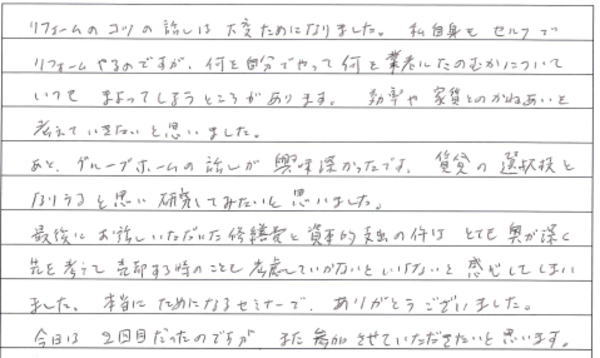 リフォームのコツの話しは大変ためになりました。私自身もセルフで
リフォームやるのですが、何を自分でやって何を業者にたのむかについて
いつも まよってしまうところがあります。効率や家賃とのかねあいを
考えていきたいと思いました。
あと、グループホームの話しが興味深かったです。賃貸の選択枝と
なりうると思い研究してみたいと思いました。
最後にお話しいただいた修繕費と資本的支出の件は とても奥が深く
先を考えて売却する時のことも考慮していかないといけないと感じてしまい
ました。本当にためになるセミナーで、ありがとうございました。
今日は2回目だったのですが、また参加させていただきたいと思います。